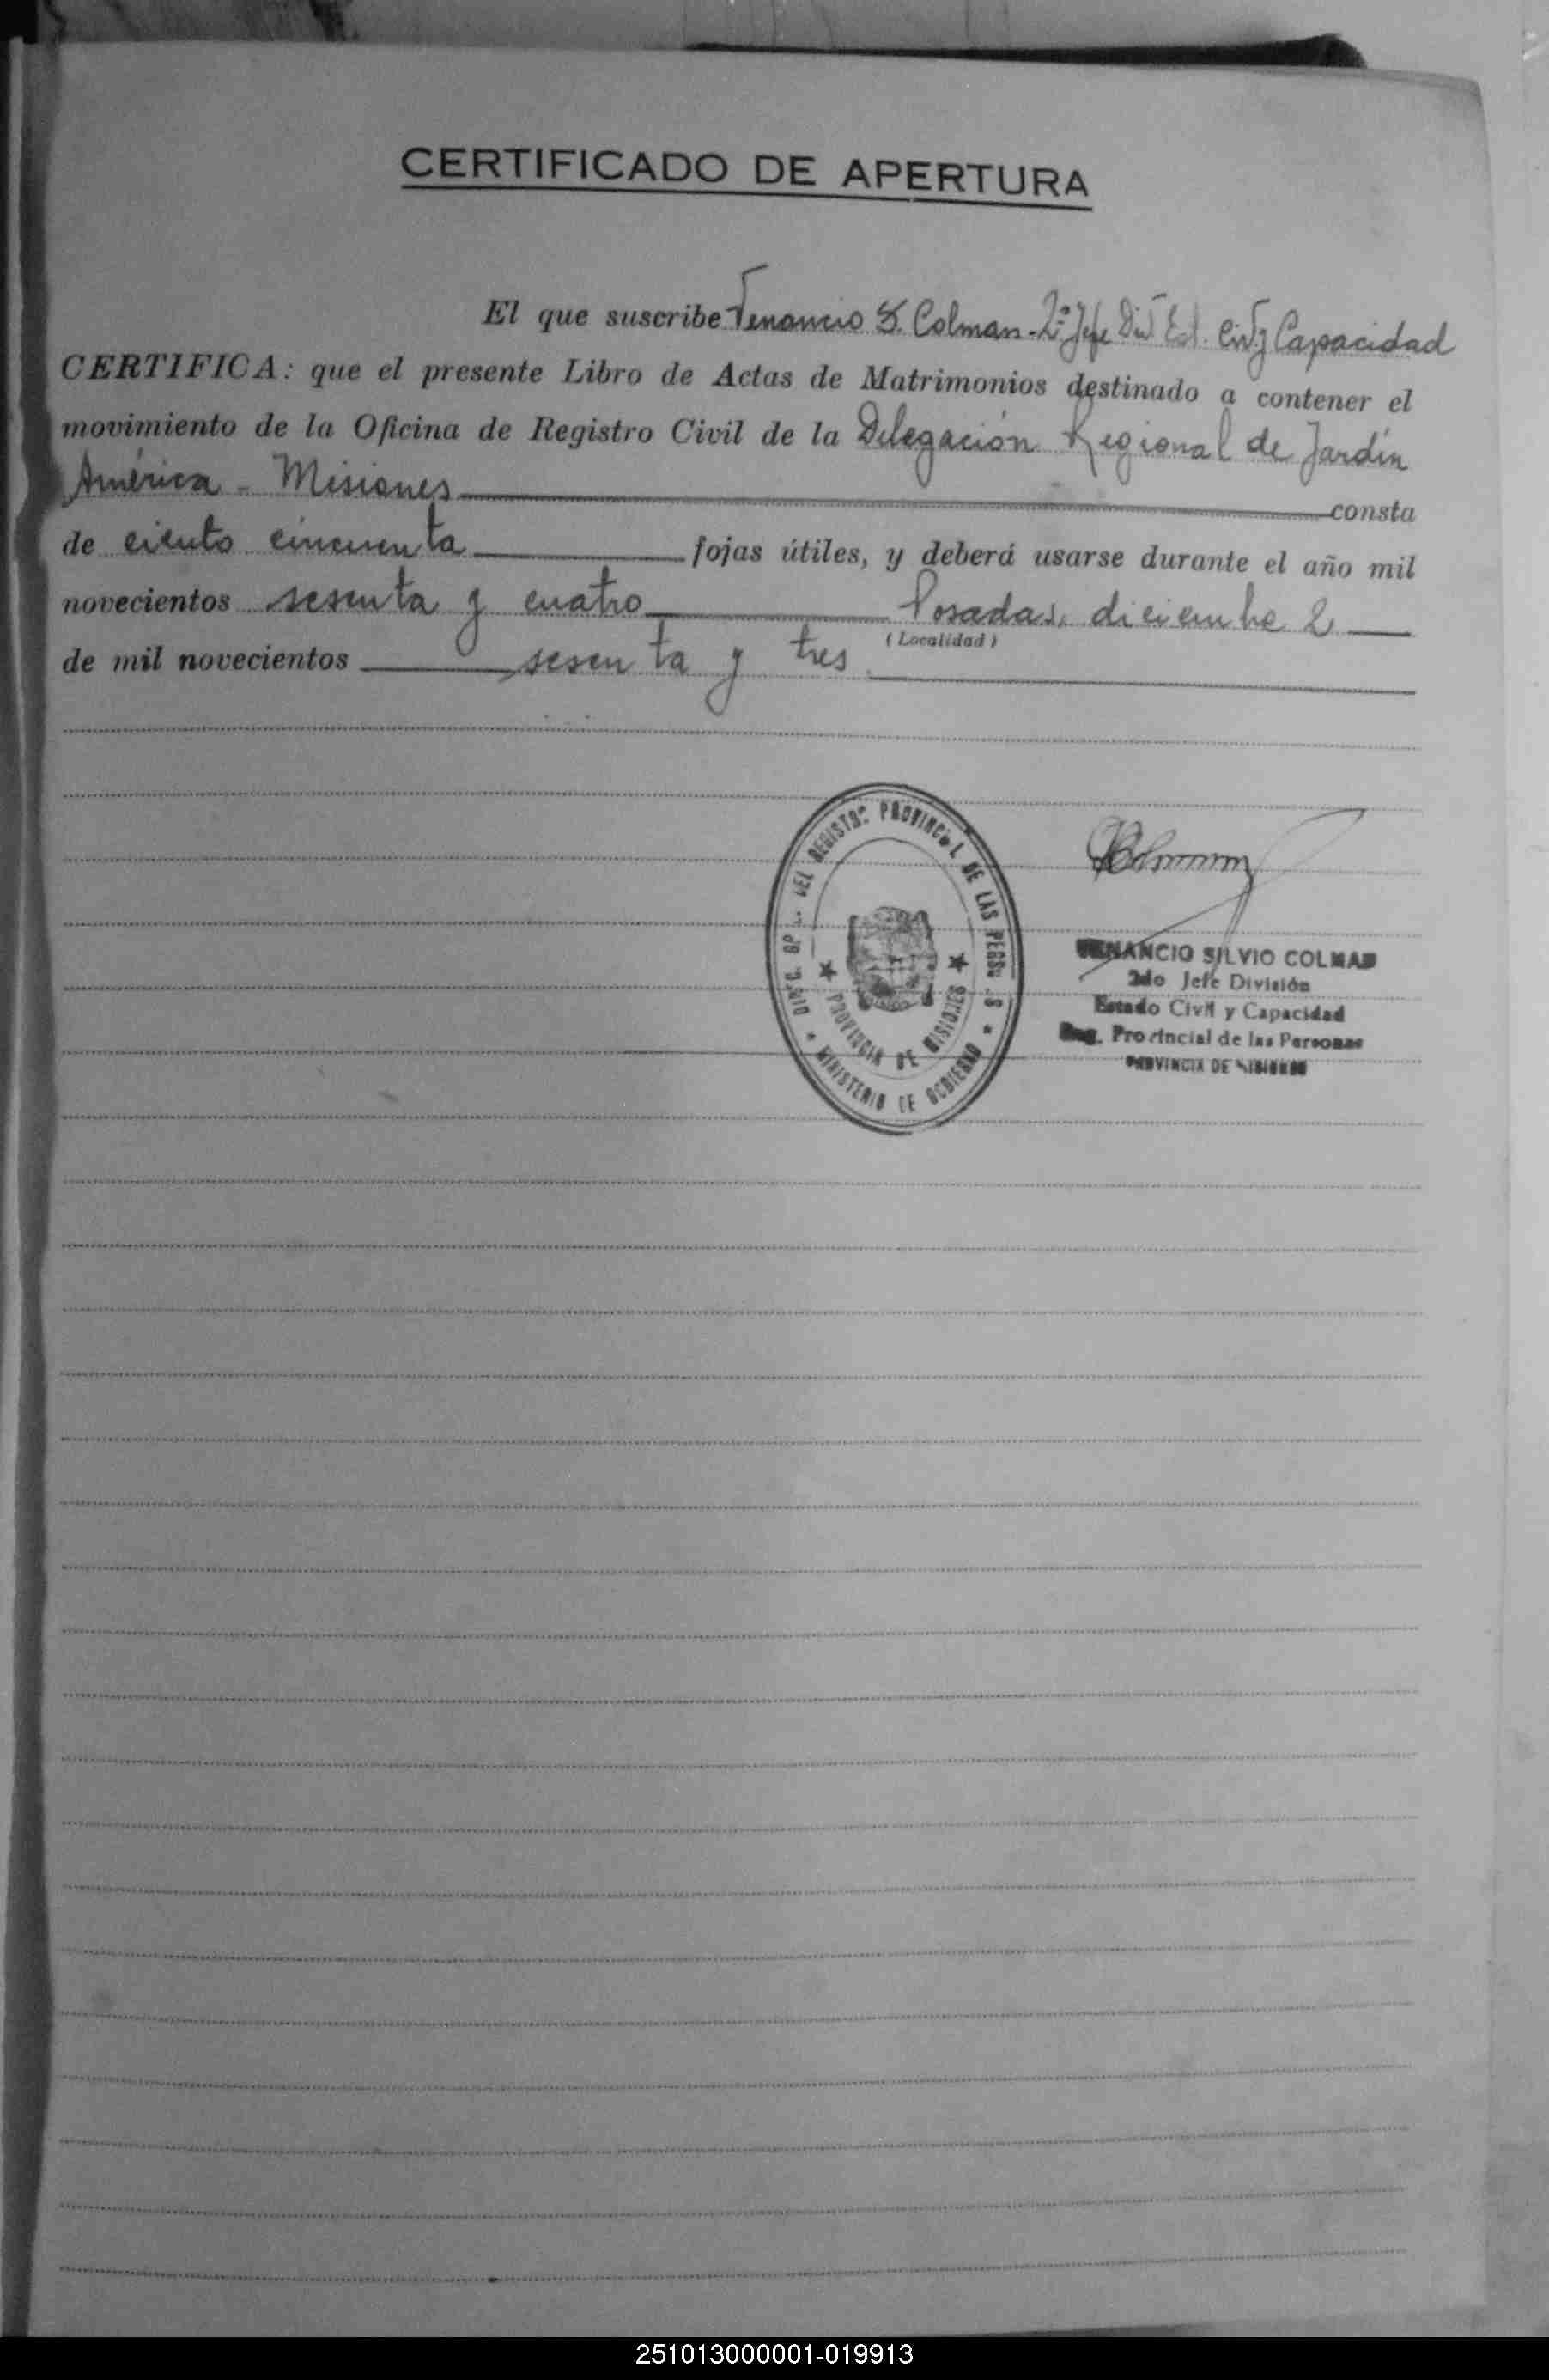 CERTIFICADO DE APERTURA
El que suscribe Venancio S. Colman - 2º Jefe Div. Est. Civ. y Capacidad
CERTIFICA: que el presente Libro de Actas de Matrimonios destinado a contener el
movimiento de la Oficina de Registro Civil de la Delegación Regional de Jardín
América - Misiones consta
de ciento cincuenta fojas útiles, y deberá usarse durante el año mil
novecientos sesenta y cuatro Posadas, diciembre 2
(Localidad)
de mil novecientos sesenta y tres
DEL REGISTRO PROVINCIAL DE LAS PERSONAS
PROVINCIA DE MISIONES
MINISTERIO DE GOBIERNO
VENANCIO SILVIO COLMAN
2do Jefe División
Estado Civil y Capacidad
Reg. Provincial de las Personas
PROVINCIA DE MISIONES
251013000001-019913